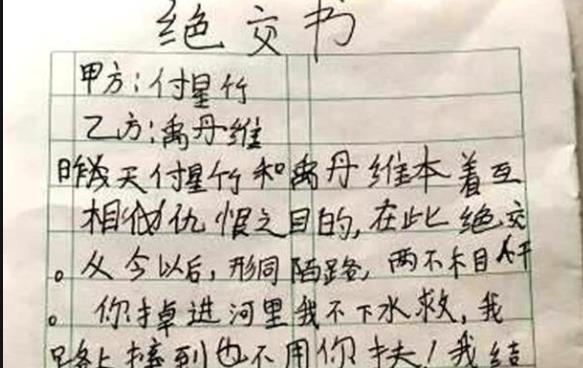 绝交书
甲方:付星竹
乙方:禹丹维
昨天付星竹和禹丹维本着互
相仇恨之目的,在此绝交
。从今以后,形同陌路,两不相干
。你掉进河里我不下水救,我
路上撞到也不用你扶!我结